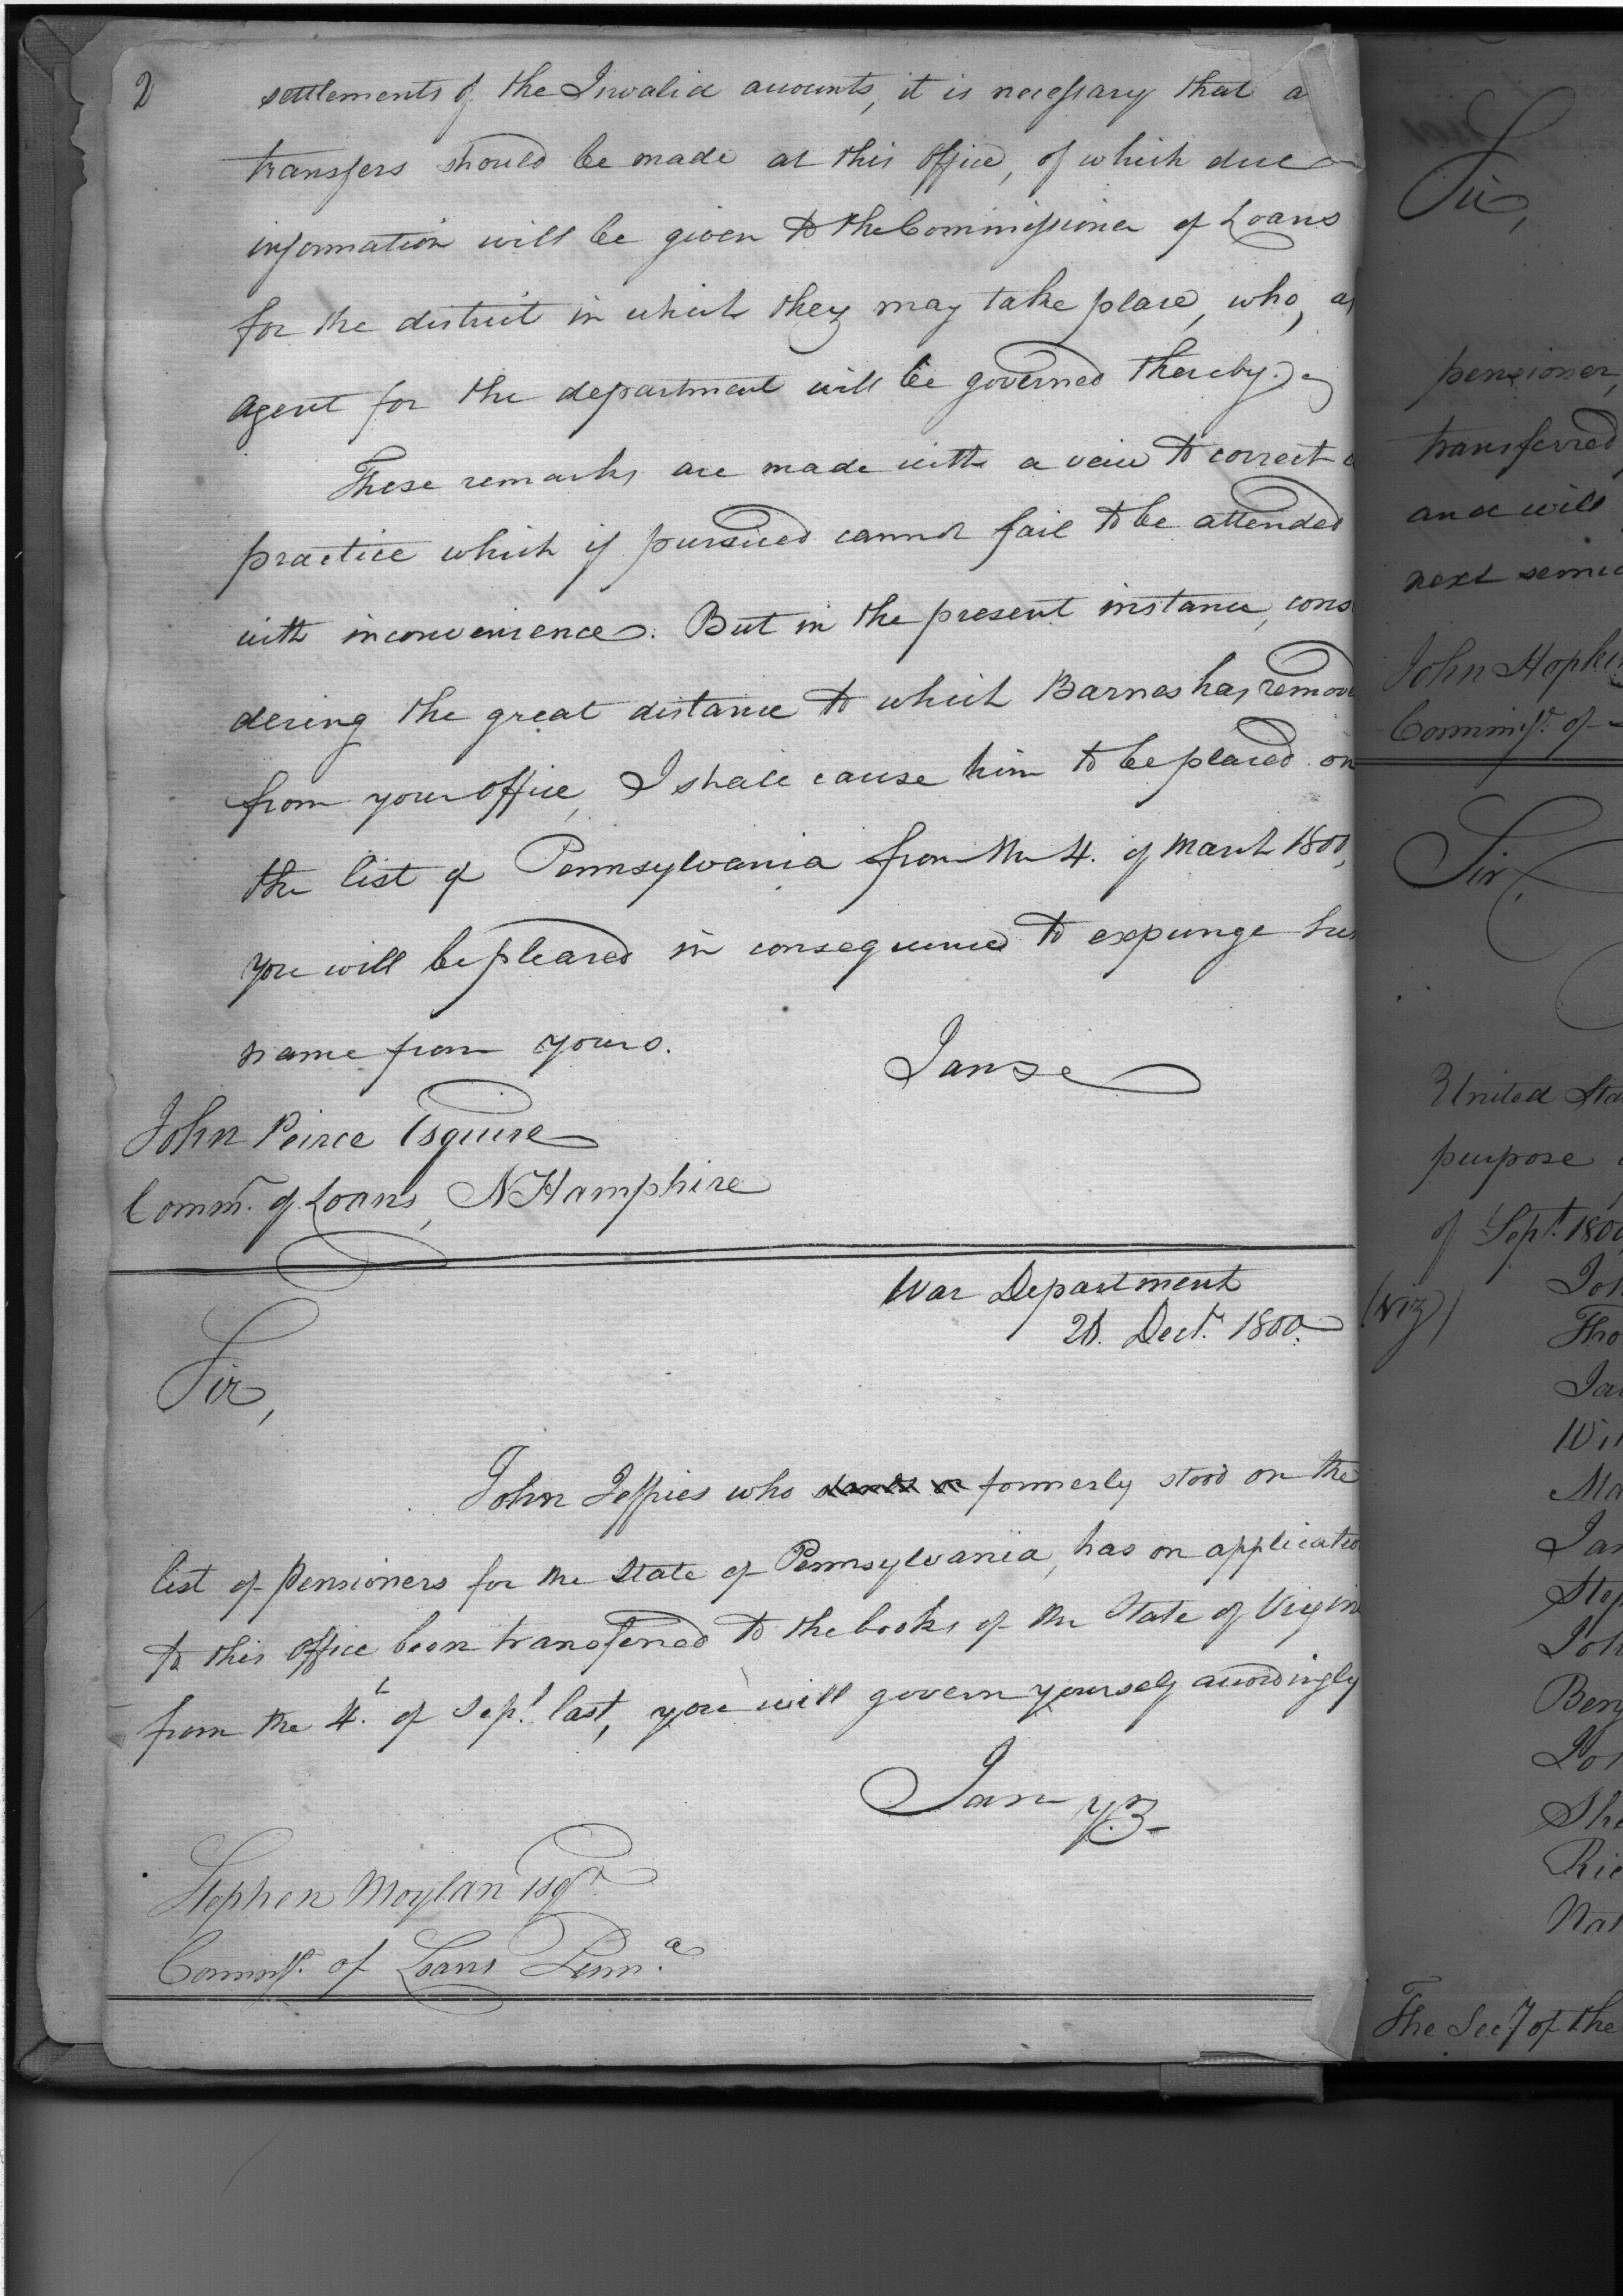 2
settlements of the Invalid accounts, it is necessary that a
transfers should be made at this Office, of which due
information will be given to the Commissioner of Loans
for the district in which they may take place, who, as
agent for the department will be governed thereby.
These remarks are made with a veiw to correct a
practice which if pursued cannot fail to be attended
with inconvenience. But in the present instance, cons
dering the great distance to which Barnes has remove
from your Office, I shall cause him to be placed on
the list of Pennsylvania from the 4. of March 1800,
you will be pleased in consequence to expunge his
name from yours.
I am &c
John Peirce Esquire
Commr. of Loans, N Hamphire
War Department
Decr. 1800.
Sir,
John Jeffries who formerly stood on the
list of pensioners for the State of Pennsylvania, has on applicatio
to this Office been transferred to the books of the State of Virgin
from the 4th. of Sept. last, you will govern yourself accordingly
I am
Stephen Moylan esqr.
Commissr. of Loans Penna.
Sir,
pensioner,
transferred
and will
next semi
John Hopki
Commissr. of
Sir,
United Sta
purpose
of Sept. 1800
(viz)
Joh
Tho
Ja
Wi
Ma
Ja
Step
Joh
Benj
Jo
She
Ric
Nat
The Secy of the